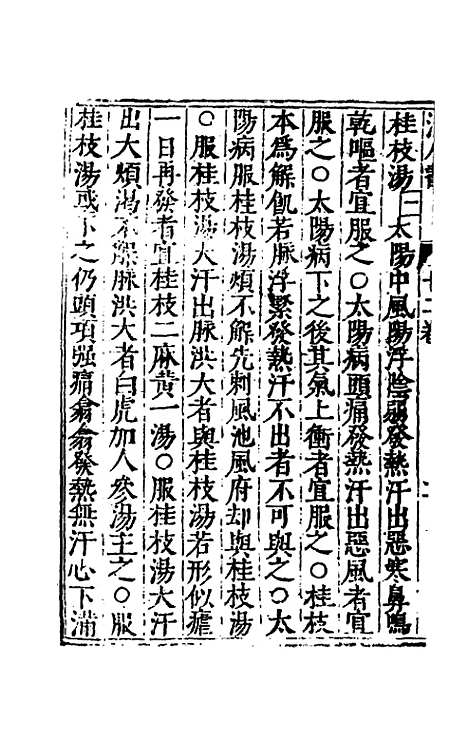 桂枝湯 一 太陽中風陽浮陰弱發熱汗出惡寒鼻鳴
乾嘔者宜服之○太陽病頭痛發熱汗出惡風者宜
服之○太陽病下之後其氣上衝者宜服之○桂枝
本爲解飢若脉浮緊發熱汗不出者不可與之○太
陽病服桂枝湯煩不解先刺風池風府却與桂枝湯
○服桂枝湯大汗出脉洪大者與桂枝湯若形似瘧
一日再發者宜桂枝二麻黃一湯○服桂枝湯大汗
出大煩渴不解脉洪大者白虎加人參湯主之○服
桂枝湯或下之仍頭項强痛翕翕發熱無汗心下滿